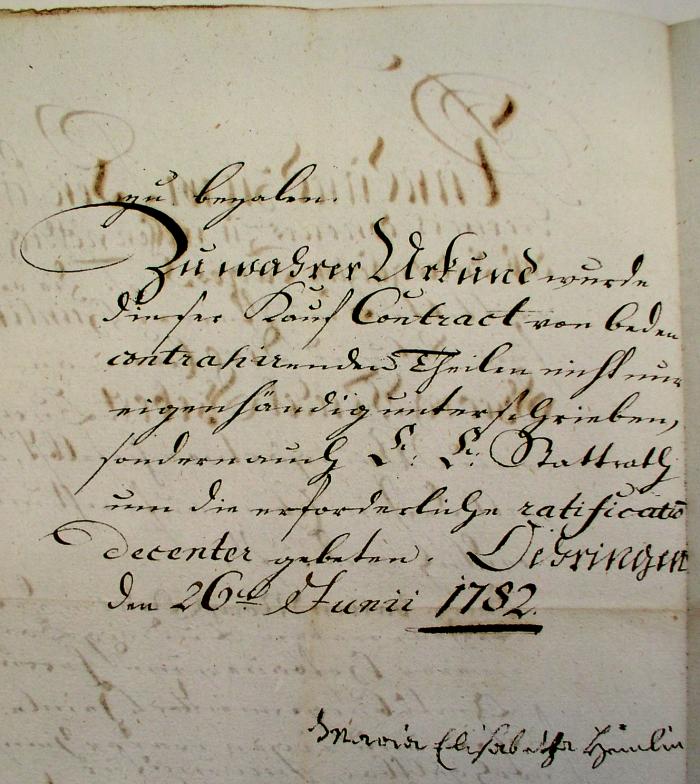 zu bezalen.
Zu wahrer Urkund wurde
dieser Kauf Contract von beden
contrahirenden Theilen nicht nur
eigenhändig unterschrieben,
sondern auch E: E: Stattrath
um die erforderliche ratification
decenter gebeten. Oehringen
den 26ten Junii 1782.
Maria Elisabetha